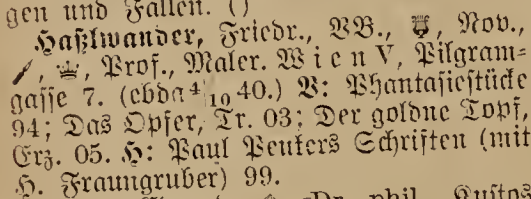 gen und Fallen. ()
Haßlwander, Friedr., VB., Nov.,
Prof., Maler. Wien V, Pilgram-
gasse 7. (ebda 4/10 40.) V: Phantasiestücke
94; Das Opfer, Tr. 03; Der goldne Topf,
Erz. 05. H: Paul Peukers Schriften (mit
H. Fraungruber) 99.
Dr. phil.